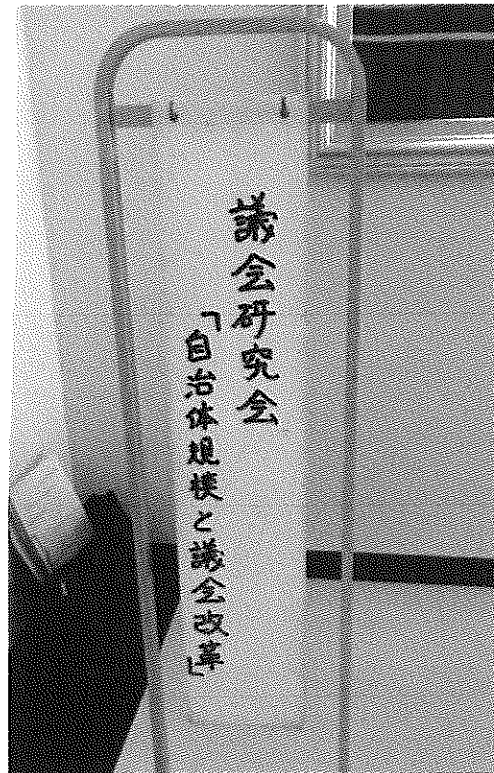 議会研究会
「自治体規模と議会改革」